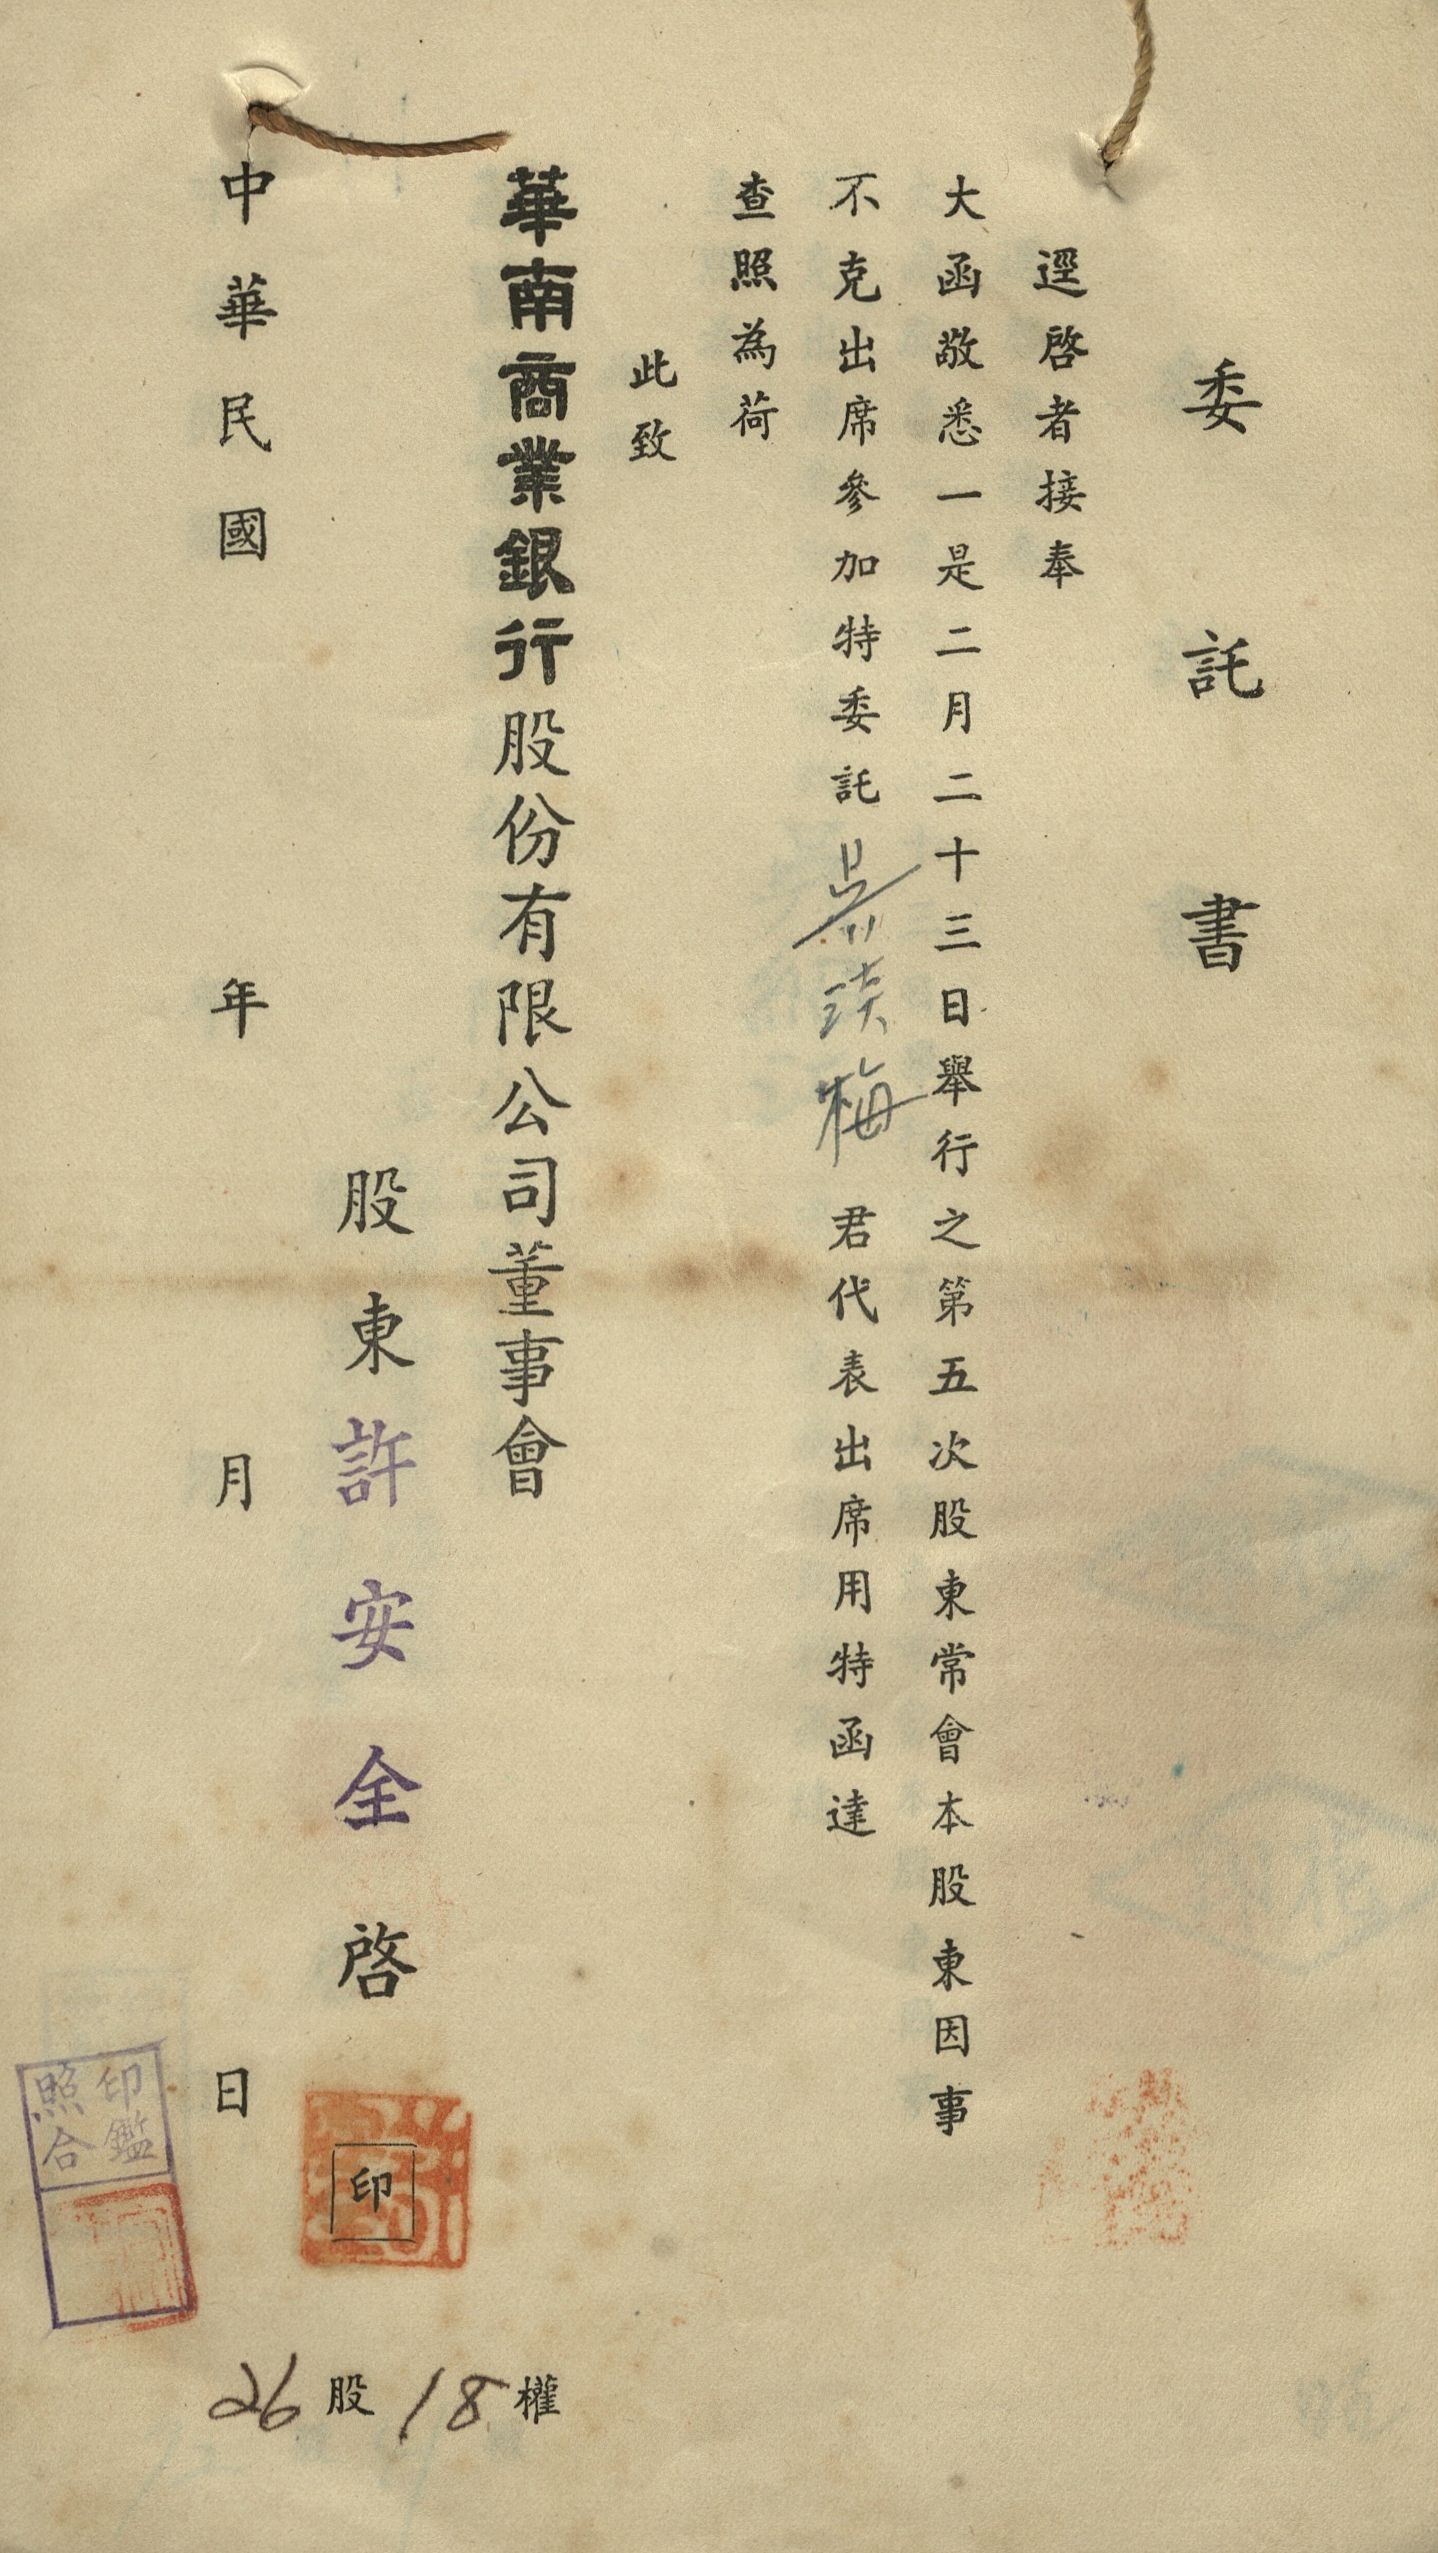 委託書
逕啓者接奉
大函敬悉一是二月二十三日舉行之第五次股東常會本股東因事
不克出席參加特委託吳琰梅君代表出席用特函達
查照為荷
此致
華南商業銀行股份有限公司董事會
股東許安全啓
印
中華民國 年 月 日
印鑑
照合
26股18權